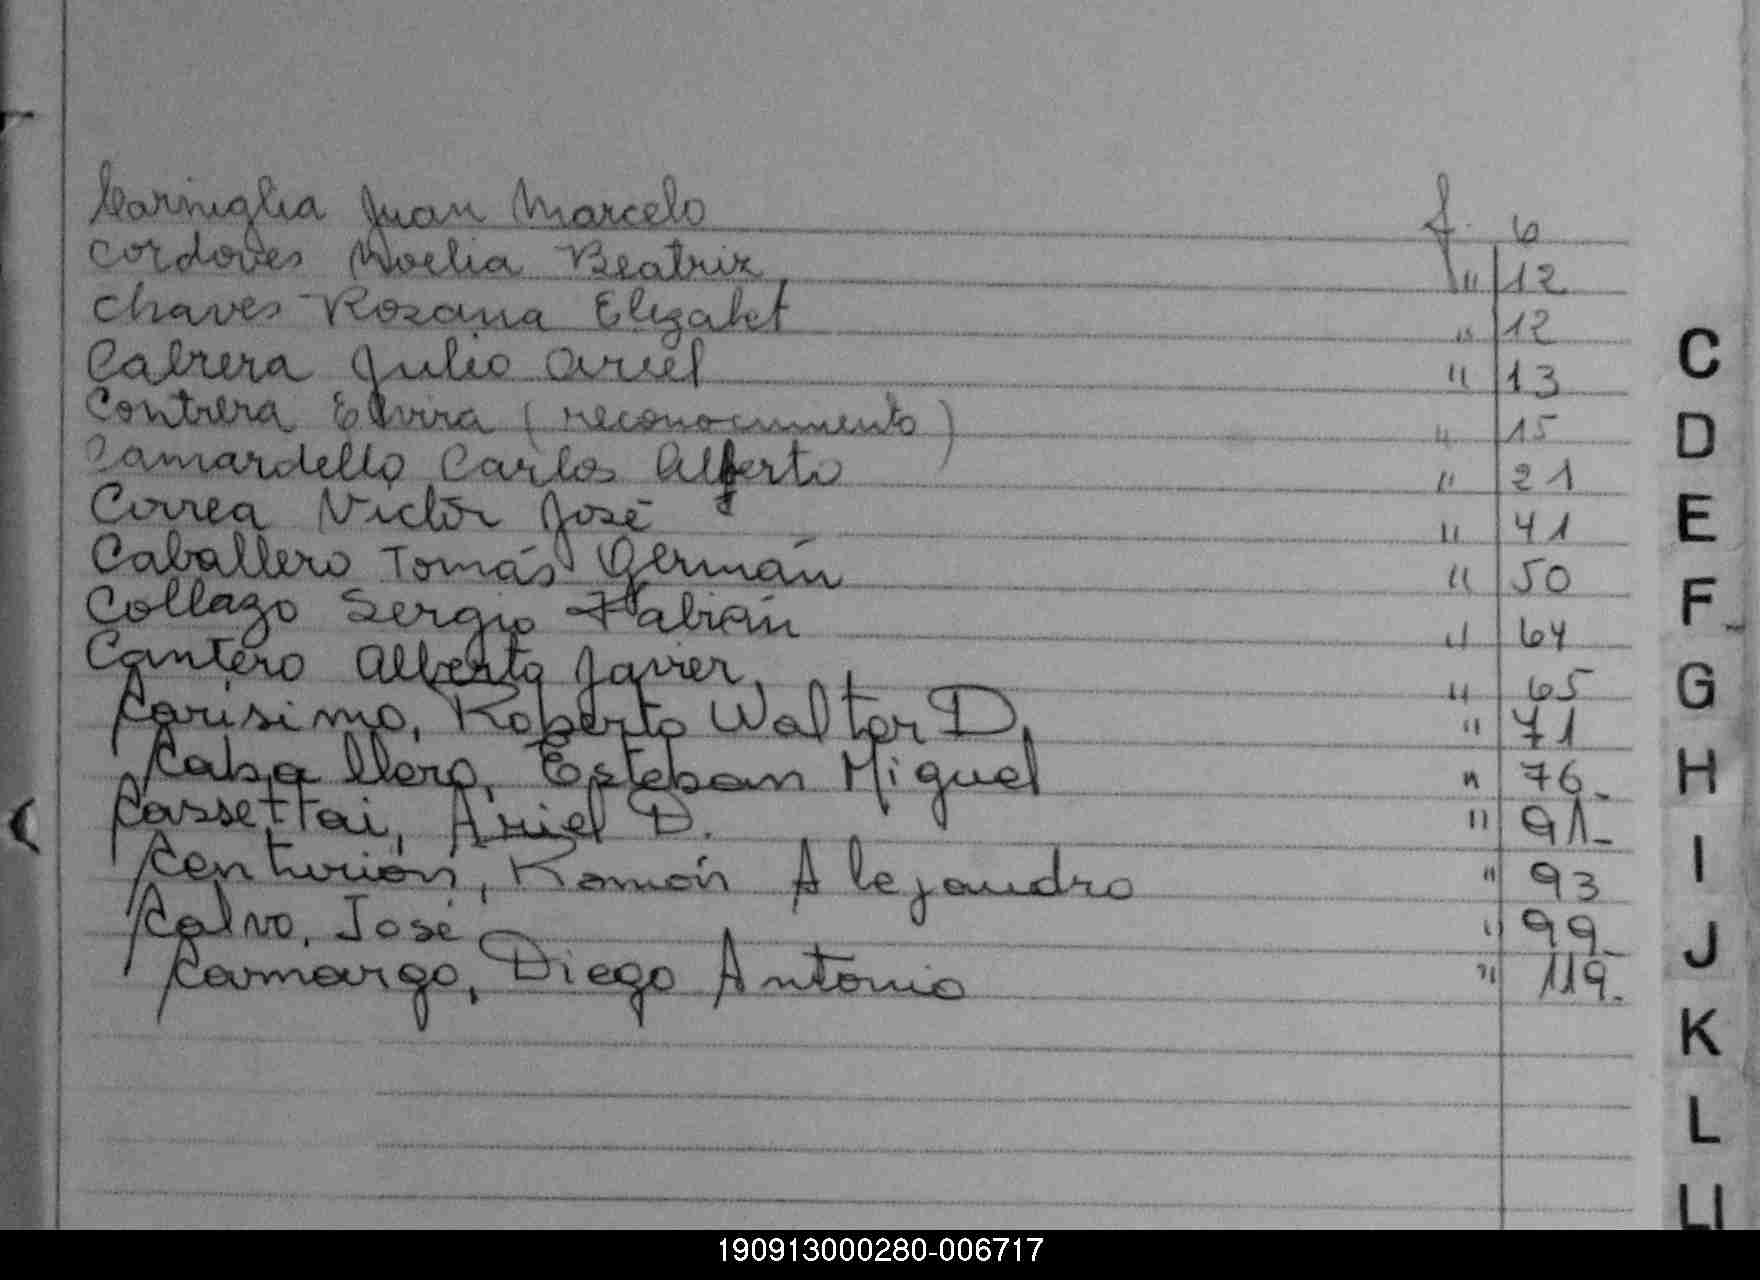 Carniglia Juan Marcelo f. 6
Cordoves Noelia Beatriz " 12
Chaves Rozana Elizabet " 12
Cabrera Julio Ariel " 13
Contrera Elvira (reconocimiento) " 15
Camardello Carlos Alberto " 21
Correa Victor José " 41
Caballero Tomás Germán " 50
Collazo Sergio Fabián " 64
Cantero Alberto Javier " 65
Carisimo, Roberto Walter D. " 71
Caballero, Esteban Miguel " 76-
Cassettai, Ariel D. " 91-
Centurión, Ramón Alejandro " 93
Calvo, José " 99-
Camargo, Diego Antonio " 119-
C
D
E
F
G
H
I
J
K
L
Ll
190913000280-006717